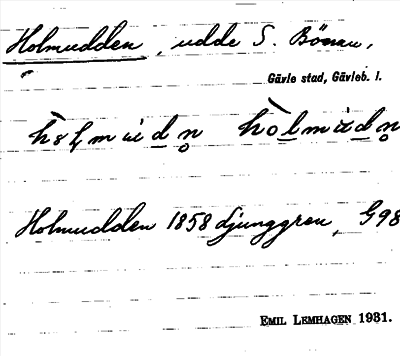 Holmudden, udde S. Bönau,
Gävle stad, Gävleb. l.
Holmudden 1858 Ljunggren, G98
EMIL LEMHAGEN 1931.